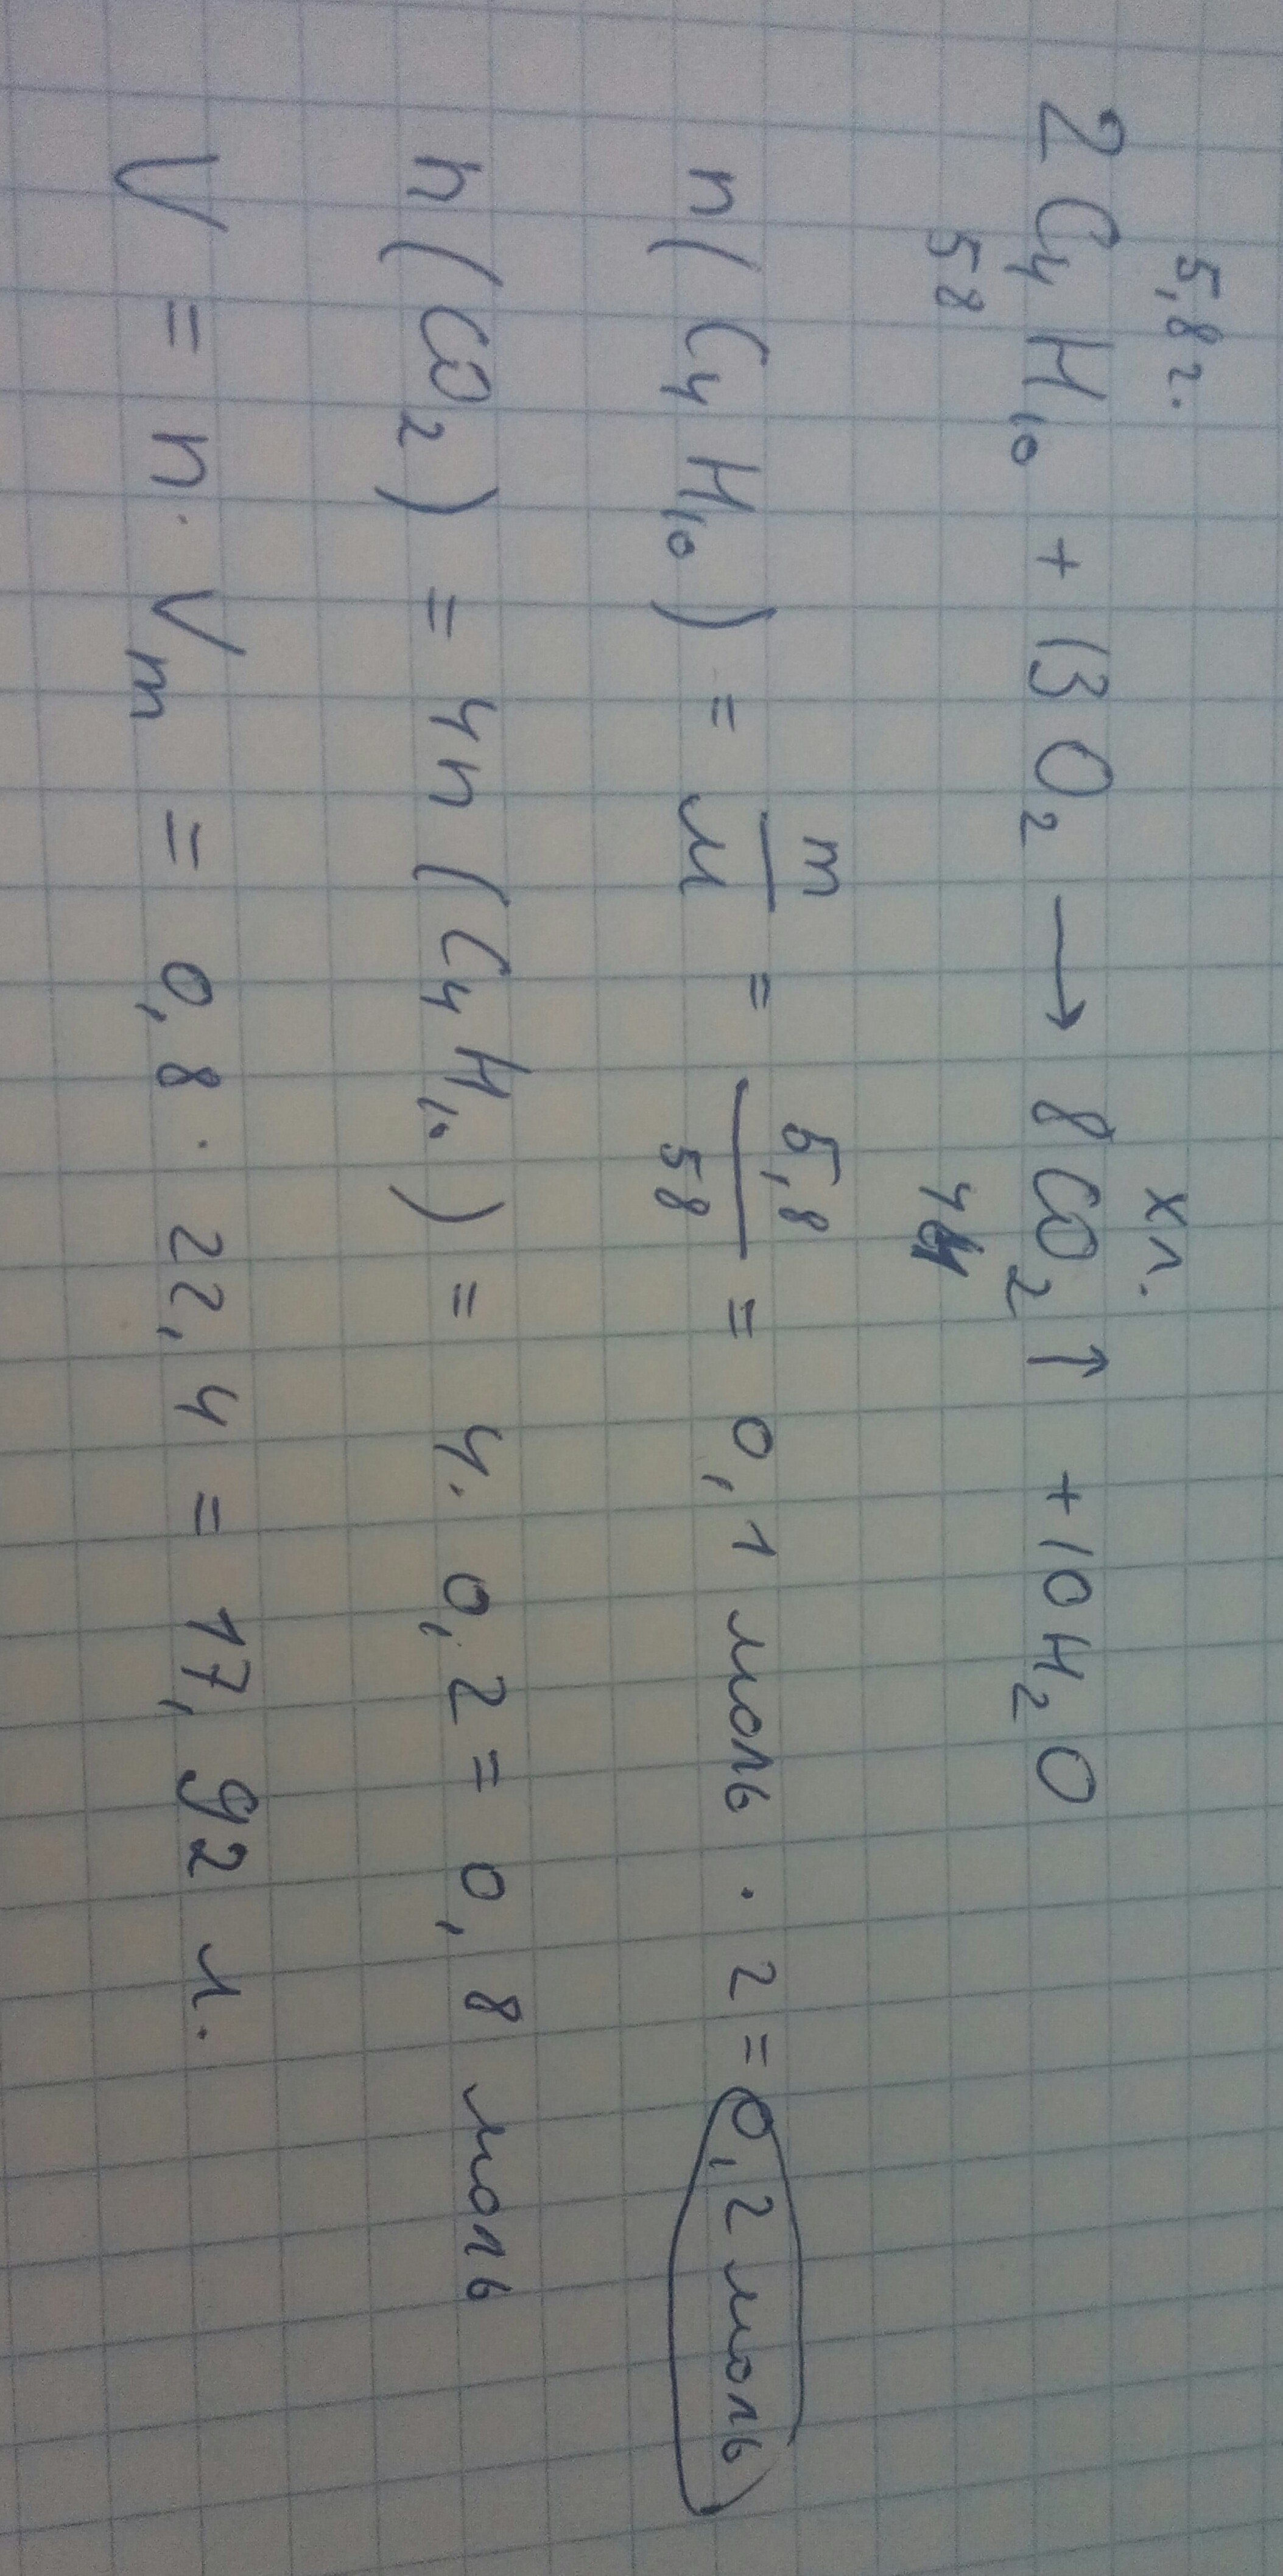 5,8 г. x л.
2 C₄H₁₀ + 13 O₂ → 8 CO₂ ↑ + 10 H₂O
58 44
n(C₄H₁₀) = m/M = 5,8/58 = 0,1 моль · 2 = 0,2 моль
n(CO₂) = 4n(C₄H₁₀) = 4 · 0,2 = 0,8 моль
V = n · Vm = 0,8 · 22,4 = 17,92 л.